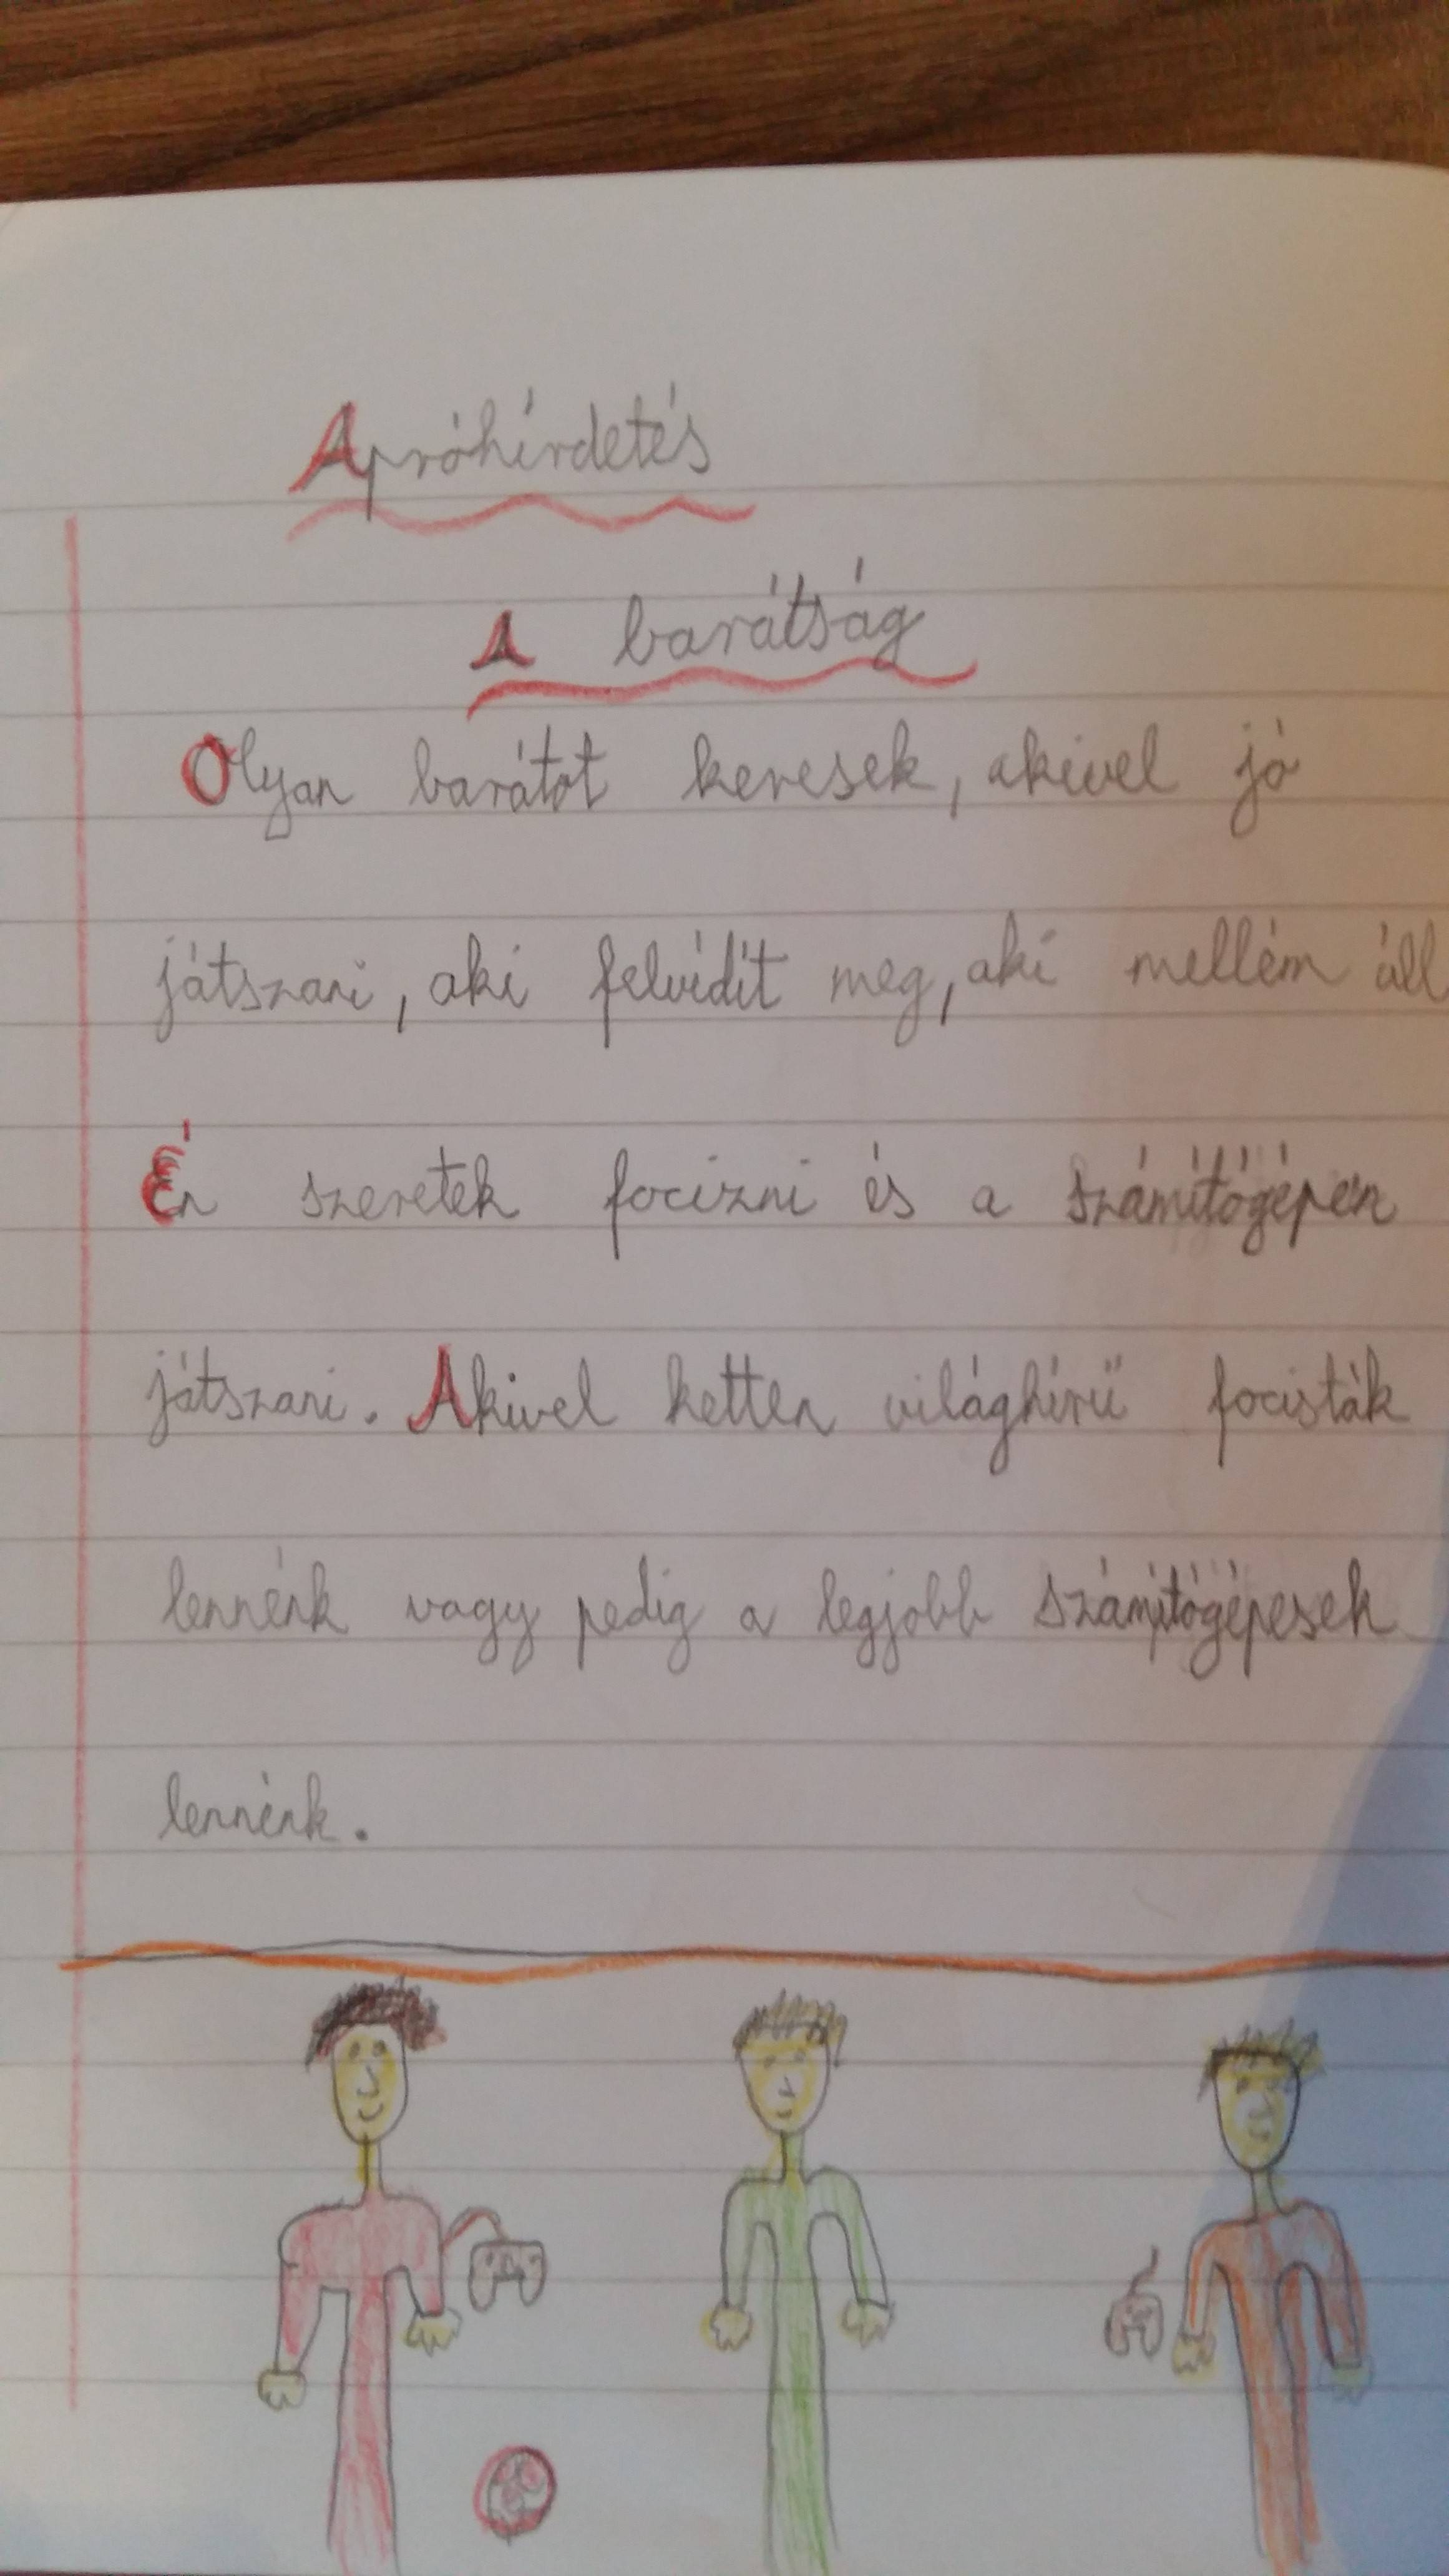 Apróhírdetés
A barátság
Olyan barátot keresek, akivel jó
játszani, aki felvídít meg, aki mellém áll
Én szeretek focizni és a számítógépen
játszani. Akivel ketten világhírű focisták
lennénk vagy pedig a legjobb számítógépesek
lennénk.